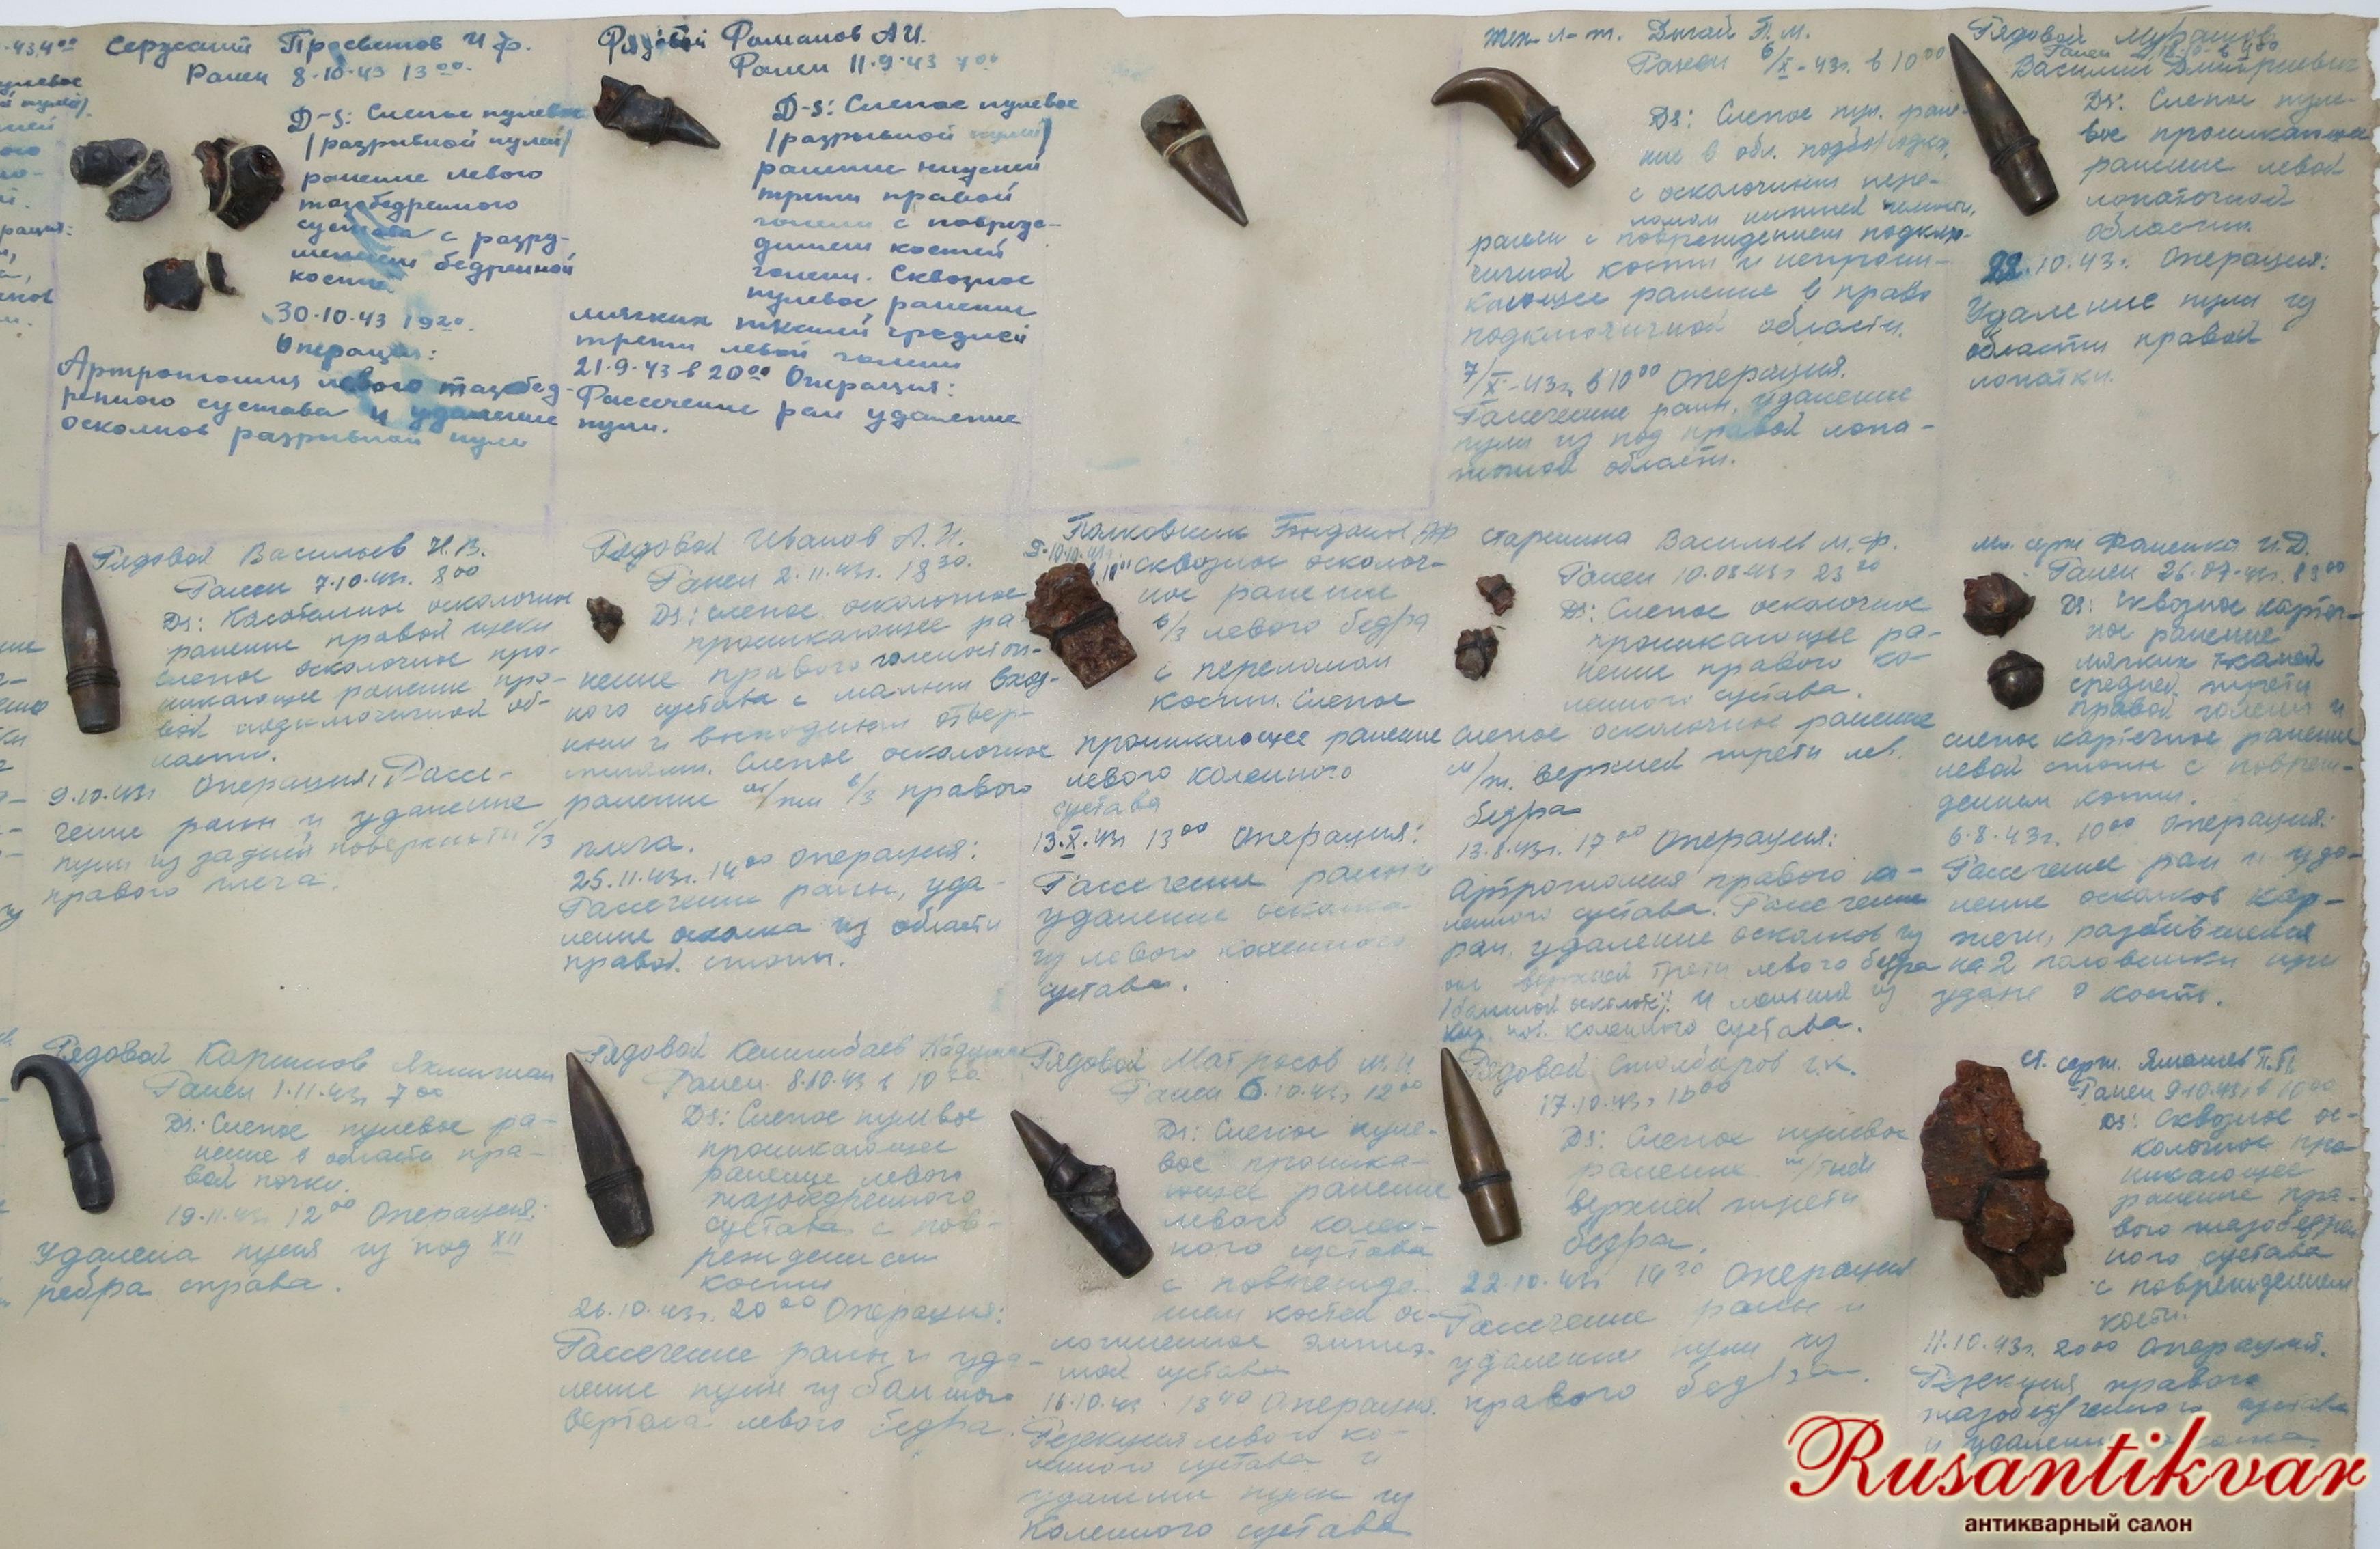 Сержант Просветов И Ф.
Ранен 8·10·43 13⁰⁰.
D-S: Слепое пулевое
/разрывной пулей/
ранение левого
тазобедренного
сустава с разру-
шением бедренной
кости.
30·10·43 19²⁰.
Операция:
Артротомия левого тазобед-
ренного сустава и удаление
осколков разрывной пули
Рядовой Романов А И.
Ранен 11·9·43 7⁰⁰
D-S: Слепое пулевое
/разрывной пулей/
ранение нижней
трети правой
голени с повреж-
дением костей
голени. Сквозное
пулевое ранение
мягких тканей средней
трети левой голени
21·9·43 в 20⁰⁰ Операция:
Рассечение ран удаление
пули.
Ранен 6/X-43г. в 10⁰⁰
Ds: Слепое пул. ране-
ние в обл. подбородка,
с осколочным пере-
ломом нижней челюсти,
ранен с повреждением подклю-
чичной кости и непрони-
кающее ранение в право
подключичной области.
7/X-43г. в 10⁰⁰ Операция.
Рассечение раны, удаление
пули из под правой лопа-
точной области.
Рядовой
Василий Дмитриевич
Ds: Слепое пуле-
вое проникающее
ранение левой
лопаточной
области.
22.10.43г. Операция:
Удаление пули из
области правой
лопатки.
Рядовой Васильев И.В.
Ранен 7·10·43г. 8⁰⁰
Ds: Касательное осколочное
ранение правой щеки
слепое осколочное про-
никающее ранение пра-
вой подключичной об-
ласти.
9.10.43г Операция: Рассе-
чение раны и удаление
пули из задней поверхности с/3
правого плеча.
Рядовой Иванов А.И.
Ранен 2·11·43г. 18³⁰.
Ds: слепое осколочное
проникающее ра-
нение правого голеностоп-
ного сустава с малым вход-
ным и выходным отвер-
стиями. Слепое осколочное
ранение м/тк в/3 правого
плеча.
25.11.43г. 14⁰⁰ Операция:
Рассечение раны, уда-
ление осколка из области
правой стопы.
Полковник
сквозное осколоч-
ное ранение
в/3 левого бедра
с переломом
кости. Слепое
проникающее ранение
левого коленного
сустава
13.X.43г 13⁰⁰ Операция:
Рассечение раны и
удаление осколка
из левого коленного
сустава.
старшина Васильев М.Ф.
Ранен 10.08.43г 23²⁰
Ds: Слепое осколочное
проникающее ра-
нение правого ко-
ленного сустава.
Слепое осколочное ранение
м/т. верхней трети лев.
бедра
13.8.43г. 17⁰⁰ Операция:
Артротомия правого ко-
ленного сустава. Рассечение
ран, удаление осколков из
верхней трети левого бедра
/большой осколок/ и меньший из
коленного сустава.
Мл. серж Фоменко И.Д.
Ранен 26·07·43г. 8³⁰
Ds: Сквозное картеч-
ное ранение
мягких тканей
средней трети
правой голени и
слепое картечное ранение
левой стопы с повреж-
дением кости.
6·8·43г. 10⁰⁰ Операция:
Рассечение ран и уда-
ление осколков кар-
течи, разбившейся
на 2 половинки при
ударе о кость.
Рядовой Каримов
Ранен 1·11·43г 7⁰⁰
Ds: Слепое пулевое ра-
нение в области пра-
вой почки.
19·11·43г 12⁰⁰ Операция:
Удалена пуля из под XII
ребра справа.
Рядовой
Ранен 8·10·43 в 10³⁰
Ds: Слепое пулевое
проникающее
ранение левого
тазобедренного
сустава с пов-
реждением
кости
26·10·43г. 20⁰⁰ Операция:
Рассечение раны и уда-
ление пули из большого
вертела левого бедра.
Рядовой Матросов М.И
Ранен 6.10.43г 12⁰⁰
Ds: Слепое пуле-
вое проника-
ющее ранение
левого колен-
ного сустава
с поврежде-
нием костей ос-
ложненное
сустава
16·10·43 13⁴⁰ Операция.
Резекция левого ко-
ленного сустава и
удаление пули из
коленного сустава
Рядовой Столбиров Г.К.
17·10·43г
Ds: Слепое пулевое
ранение м/тней
верхней трети
бедра.
22·10·43г 14³⁰ Операция
Рассечение раны и
удаление пули из
правого бедра.
Ст. серж. Ямашев П.П.
Ранен 9·10·43г в 10⁰⁰
Ds: Сквозное ос-
колочное про
никающее
ранение пра-
вого тазобедрен
ного сустава
с повреждением
кости.
11·10·43г. 20⁰⁰ Операция.
Резекция правого
тазобедренного сустава
и удаление осколка
Rusantikvar
антикварный салон